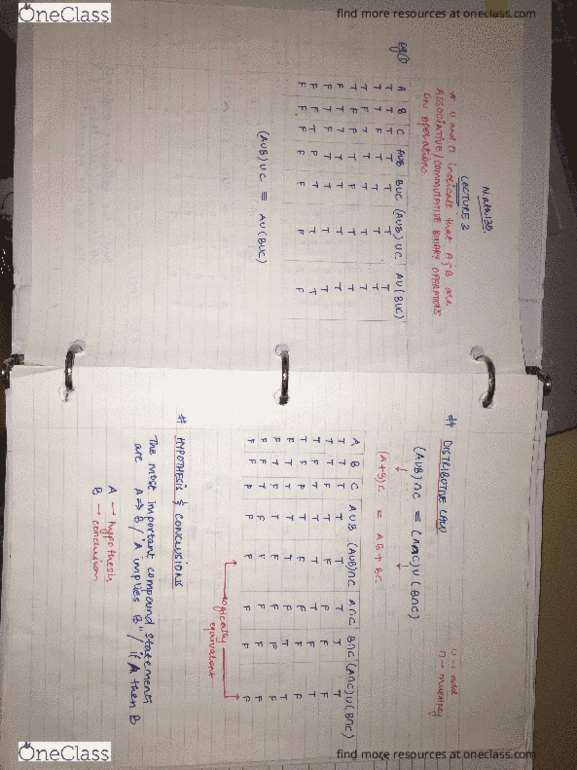 OneClass
find more resources at oneclass.com
Math 130.
LECTURE 3
* U and ∩ indicate that A & B are
ASSOCIATIVE/COMMUTATIVE BINARY OPERATORS
in operations
eg①
A B C AUB BUC (AUB)UC AU(BUC)
T T T T T T T
T T F T T T T
T F T T T T T
T F F T F T T
F T T T T T T
F T F T T T T
F F T F T T T
F F F F F F F
(AUB)UC ≡ AU(BUC)
# DISTRIBUTIVE LAW
U → add
∩ → multiply
(AUB)∩C ≡ (A∩C)U(B∩C)
(A+B)C = AB+BC
A B C AUB (AUB)∩C A∩C B∩C (A∩C)U(B∩C)
T T T T T T T T
T T F T F F F F
T F T T T T F T
T F F T F F F F
F T T T T F T T
F T F T F F F F
F F T F F F F F
F F F F F F F F
logically
equivalent
# HYPOTHESIS & CONCLUSIONS
The most important compound statements
are A ⇒ B / "A implies B" / if A then B
A → hypothesis
B → conclusion
OneClass
find more resources at oneclass.com